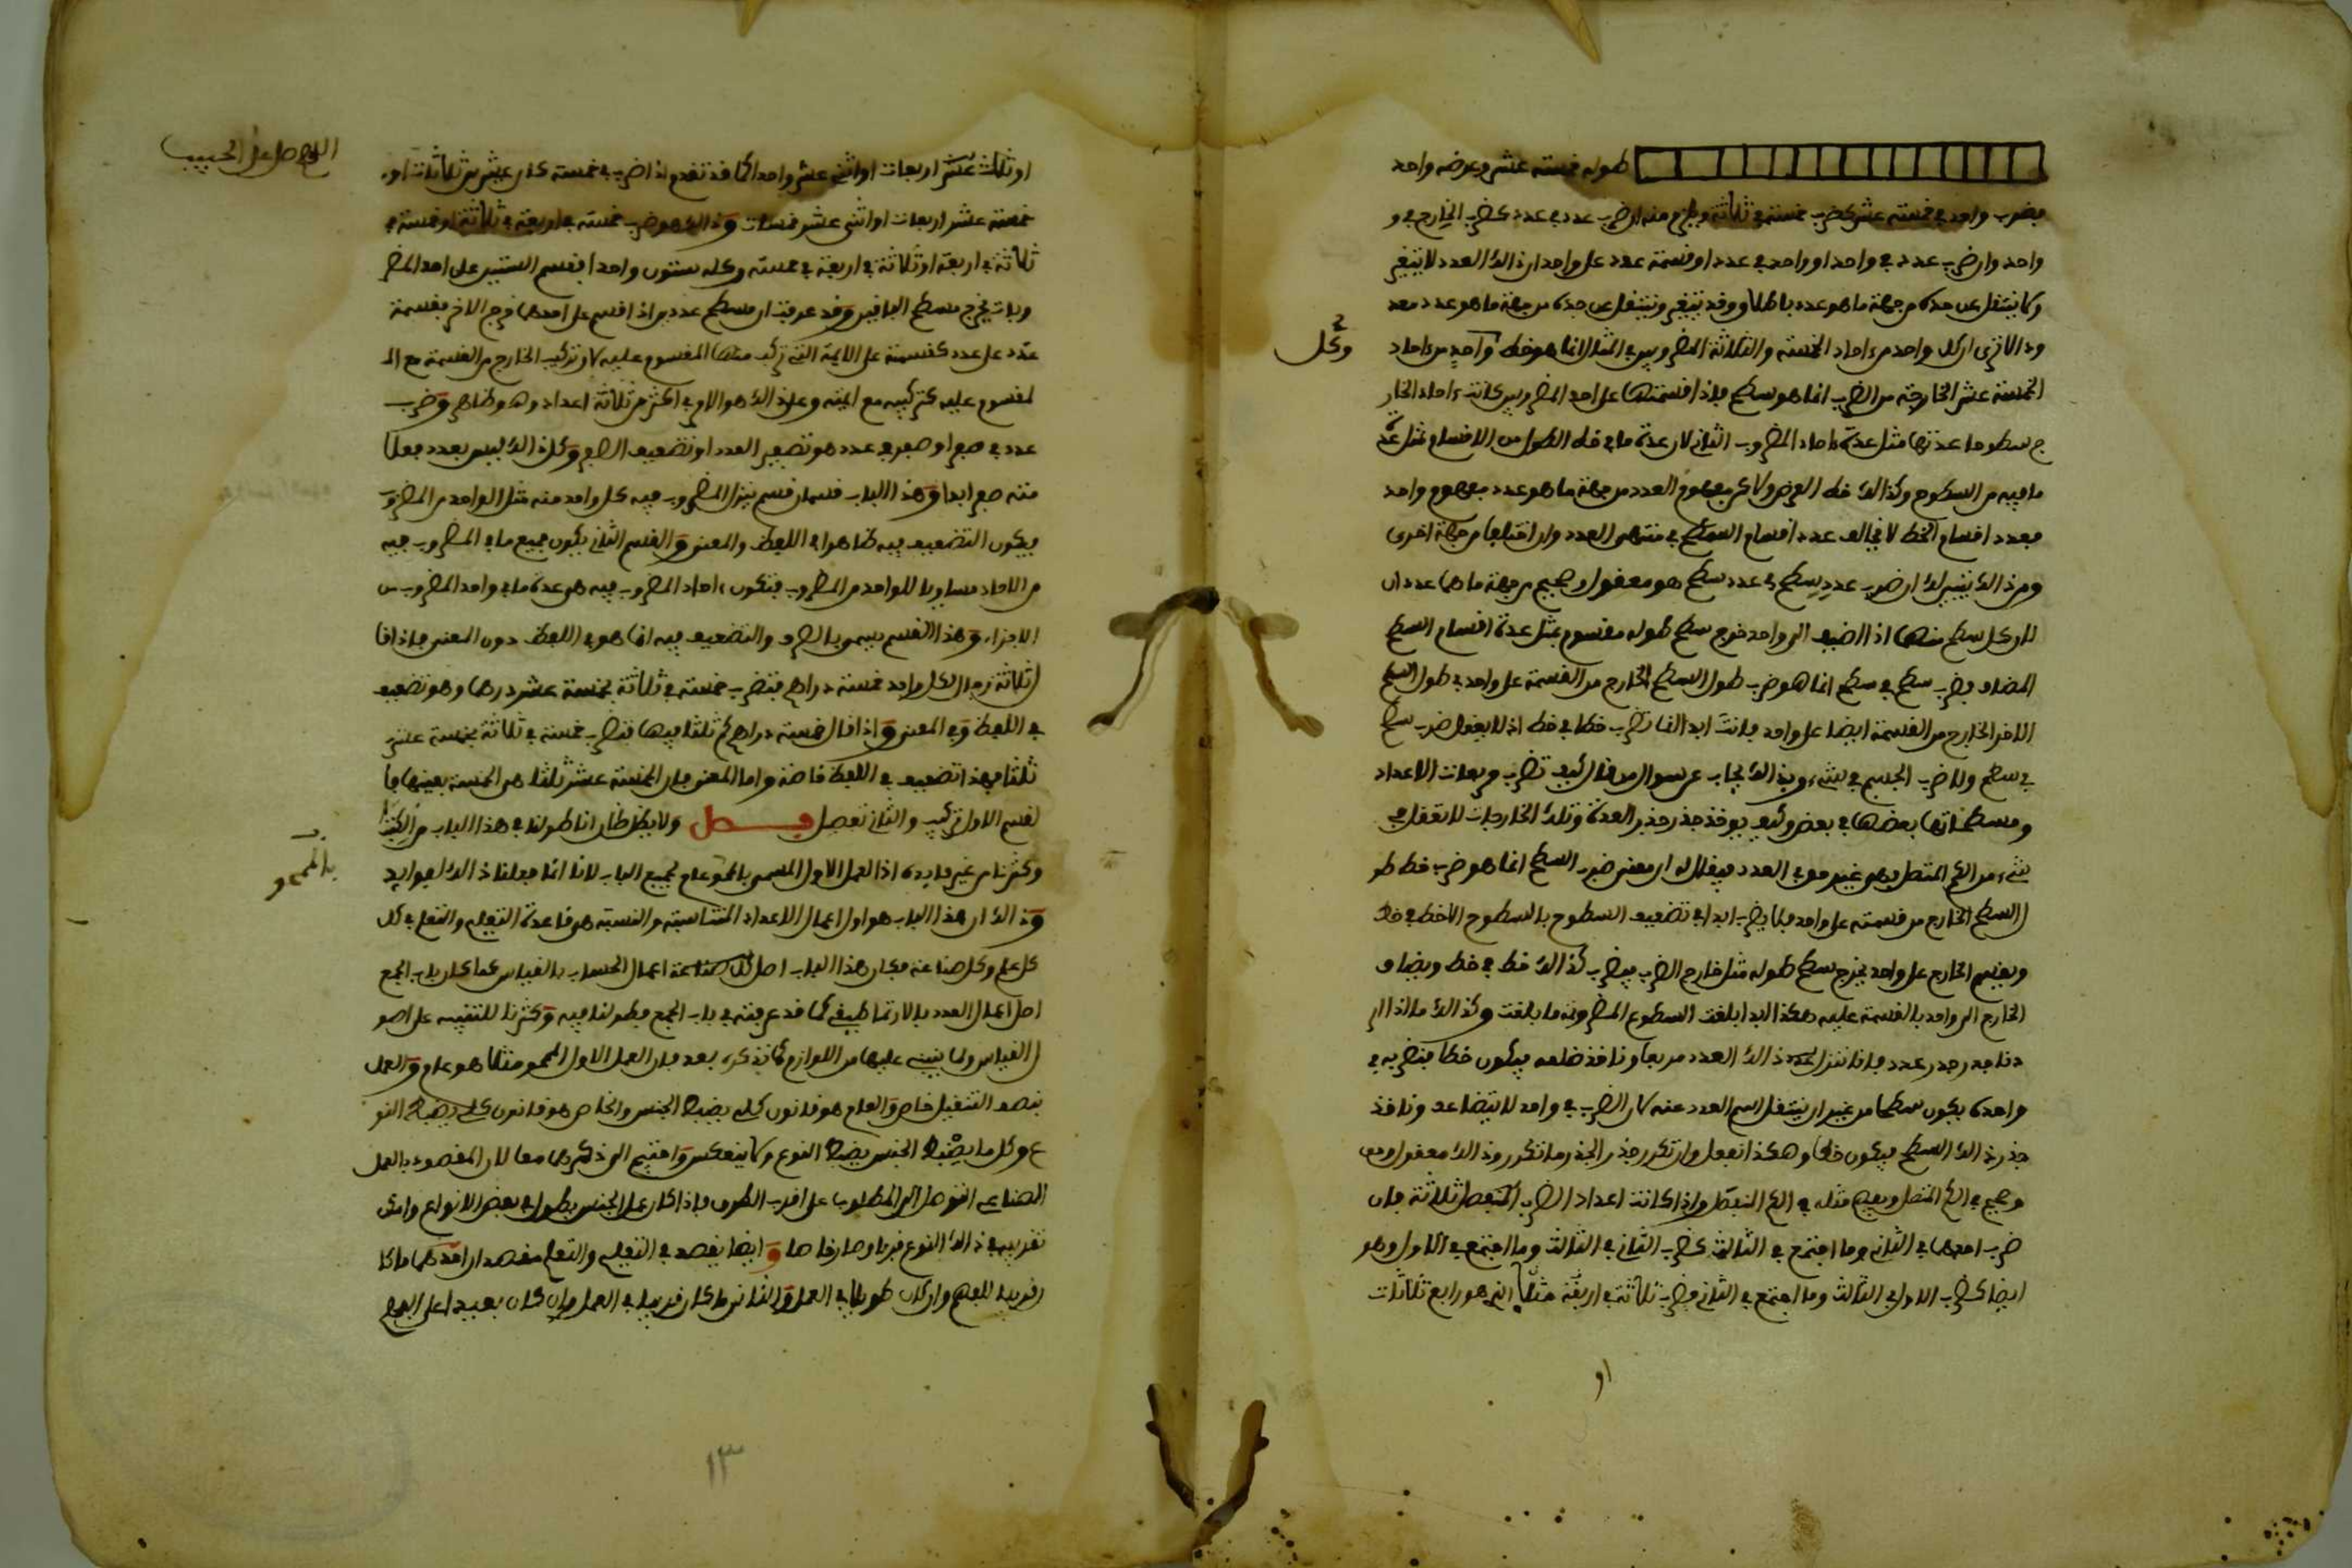 طوله خمسة عشر وعرضه واحد
فضرب واحد في خمسة عشر كضرب خمسة في ثلاثة ويلزم منه ان ضرب عدد في عدد كضرب الخارج في و
واحد وان ضرب عدد في واحد او واحد في عدد او قسمة عدد على واحد ان ذلك العدد لا يتغير
ولا ينتقل عن حده من جهة ما هو عدد باطلا وقد يتغير وينتقل عن حده من جهة ما هو عدد معد
ود الا ترى ان كل واحد من ءاحاد الخمسة والثلاثة المضروبين في المثال انما هو خط وكل واحد من ءاحاد
الخمسة عشر الخارجة من الضرب انما هو سطح فاذا قسمتها على احد المضروبين كانت ءاحاد الخار
ج سطوحا عدتها مثل عدة ءاحاد المضروب الثاني لان عدة ما في خط الطول من الاقسام مثل عدة
ما فيه من السطوح وكذلك خط العرض ولاكن مفهوم العدد من جهة ما هو عدد مفهوم واحد
فعدد اقسام الخط لا يخالف عدد اقسام السطح في منتهى العدد وان اختلفا من جهة اخرى
ومن ذلك يتبين لك ان ضرب عدد سطح في عدد سطح هو معقول وصحيح من جهة ما هما عددان
لان كل سطح منهما اذا اضيف الى واحد خرج سطح طوله مقسوم بمثل عدة اقسام السطح
المضاف فضرب سطح في سطح انما هو ضرب طول السطح الخارج من القسمة على واحد في طول السطح
الاخر الخارج من القسمة ايضا على واحد فانت ابدا انما تضرب خطا في خط اذ لا يعقل ضرب سطح
في سطح ولا ضرب الجسم في شيء وبذلك يجاب عن سوال من قال كيف تضرب مربعات الاعداد
ومسطحاتها بعضها في بعض وكيف يوخذ جذر جذر العدة وتلك الخارجات لا تعقل في
شيء من الكم المتصل وهو غير موي العدد فيقال له ان معنى ضرب السطح انما هو ضرب خط طو
ل السطح الخارج من قسمته على واحد فلما يضرب ابدا في تضعيف السطوح بالسطوح الا خط في خط
ويقسم الخارج على واحد يخرج سطح طوله مثل خارج الضرب فيضرب كذلك خط في خط ويضاف
الخارج الى واحد بالقسمة عليه هكذا ابدا بلغت السطوح المضروبة ما بلغت وكذلك ما اذا ار
دنا جذر جذر عدد فانا ننزل ذلك العدد مربعا وناخذ ضلعه فيكون خطا فنضربه في
واحد يكون سطحا من غير ان ينتقل اسم العدد عنه لان الضرب في واحد لا يتضاعف وناخذ
جذر ذلك السطح فيكون خطا وهكذا نفعل وان تكرر جذر الجذر ما تكرر وذلك معقول ومعى
وصحيح في الكم المتصل ويصح مثله في الكم المنفصل واذا كانت اعداد الضرب المنفصل ثلاثة فان
ضرب احدها في الثاني وما اجتمع في الثالث كضرب الثاني في الثالث وما اجتمع في الاول وهو
ايضا كضرب الاول في الثالث وما اجتمع في الثاني فضرب ثلاثة في اربعة مثلا التي هو رابع ثلاثات
او
وكل
اللهم صل على الحبيب
او ثلث عشر اربعات او اثني عشر واحدا كما قد تقدم اذا ضرب في خمسة كان عشرين ثلاثات او
خمسة عشر اربعات او اثنى عشر خمسات وذلك هو ضرب خمسة في اربعة في ثلاثة او خمسة في
ثلاثة في اربعة او ثلاثة في اربعة في خمسة وكله ستون واحدا بقسم الستين على احد المضر
وبات يخرج مسطح الباقين وقد عرفت ان مسطح عددين اذا قسم على احدهما خرج الاخر فقسمة
عدد على عدد كقسمته على الايمة التي تركب منها المقسوم عليه لان تركيب الخارج من القسمة مع الـ
لمقسوم عليه كتركيبه مع ايمته وعلى ذلك هو الامر في اكثر من ثلاثة اعداد وهو ظاهر وضرب
عدد في صفر او صفر في عدد هو تصفير العدد او تضعيف الصفر وكل ذلك ليس بعدد فعلا
متنه صفر ابدا وهذا الباب قسمان قسم ينزل المضروب فيه كل واحد منه مثل الواحد من المضروب
فيكون التضعيف فيه ظاهرا في اللفظ والمعنى والقسم الثاني يكون جميع ما في المضروب فيه
من الاحاد مساويا للواحد من المضروب فتكون ءاحاد المضروب فيه هي عدة ما في واحد المضروب من
الاجزاء وهذا القسم يسمى بالصرف والتضعيف فيه انما هو في اللفظ دون المعنى فاذا قا
ل ثلاثة رجال لكل واحد خمسة دراهم فتضرب خمسة في ثلاثة بخمسة عشر درهما وهو تضعيف
في اللفظ وفي المعنى واذا قال خمسة دراهم كم ثلثا فيها فتضرب خمسة في ثلاثة بخمسة عشر
ثلثا فهذا تضعيف في اللفظ خاصة واما المعنى فان الخمسة عشر ثلثا هي الخمسة بعينها فا
لقسم الاول تركيب والثاني تفصيل فصل ولا يظن ظان انا طولنا في هذا الباب من الكتب
وكثرنا من غير فايدة اذ العمل الاول المسمى بالمحو عام لجميع الباب لانا انما فعلنا ذلك لفوايد
وذلك ان هذا الباب هو اول اعمال الاعداد المتناسبة والنسبة هي قاعدة التعليم والتعلم في كل
كل علم وكل صناعة فكان هذا الباب اصل كل صناعة اعمال الحساب بالقياس كما كان باب الجمع
اصل اعمال العدد بالارتماطيقي كما قد عرفته في باب الجمع فطولنا فيه وكثرنا للتنبيه على اصو
ل القياس ولما ينبني عليها من اللوازم كما نذكر، بعد فان العمل الاول المحمو مثلا هو عام والعمل
بنصف التنقيل خاص والعام هو قانون كلي يضبط الجنس والخاص هو قانون كلي يضبط النو
ع وكل ما يضبط الجنس يضبط النوع ولا ينعكس واحتيج الى ذكرهما معا لان المقصود بالعمل
الصناعي التوصل الى المطلوب على اقرب الطرق فاذا كان عمل الجنس يطول في بعض الانواع وامكن
تقريبه في ذلك النوع قربا وصار خاصا وايضا يقصد في التعليم والتعلم مقصدان احدهما ما كا
ن قريبا للفهم وان كان طويلا في العمل والثاني ما كان قريبا في العمل وان كان بعيدا على الفهم
بالمحو
١٣